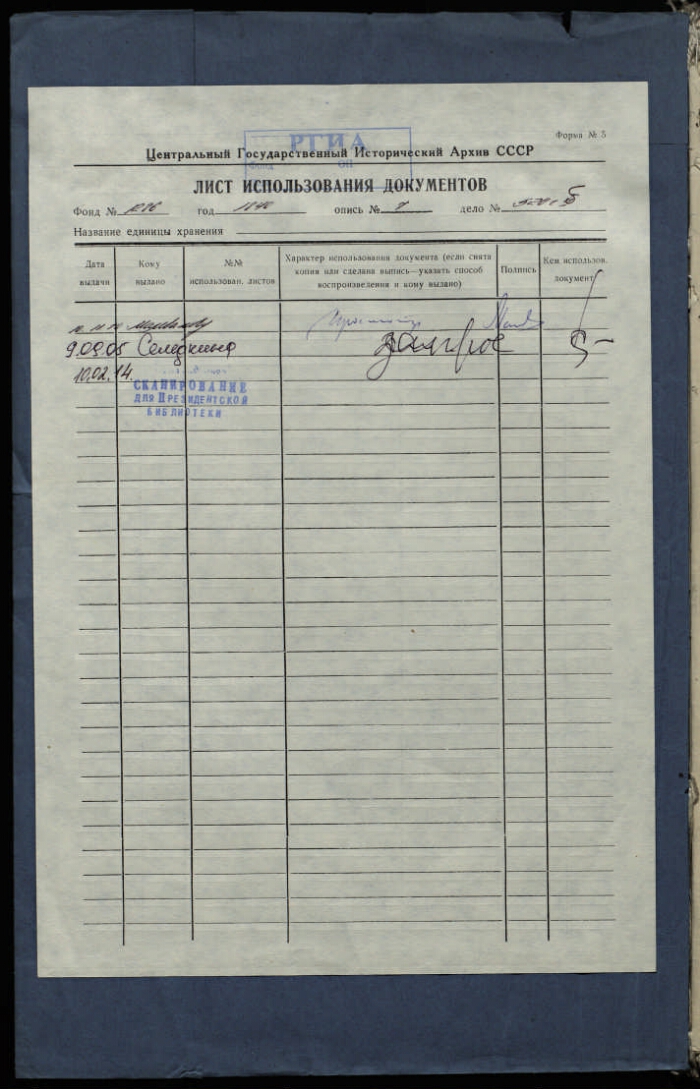 Форма № 5
РГИА
Фонд оп
Центральный Государственный Исторический Архив СССР
ЛИСТ ИСПОЛЬЗОВАНИЯ ДОКУМЕНТОВ
Фонд № год опись № дело №
Название единицы хранения
Дата выдачи
Кому выдано
№№ использован. листов
Характер использования документа (если снята копия или сделана выпись—указать способ воспроизведения и кому выдано)
Подпись
Кем использов. документ
9.09.05
10.02.14.
СКАНИРОВАНИЕ
ДЛЯ ПРЕЗИДЕНТСКОЙ
БИБЛИОТЕКИ